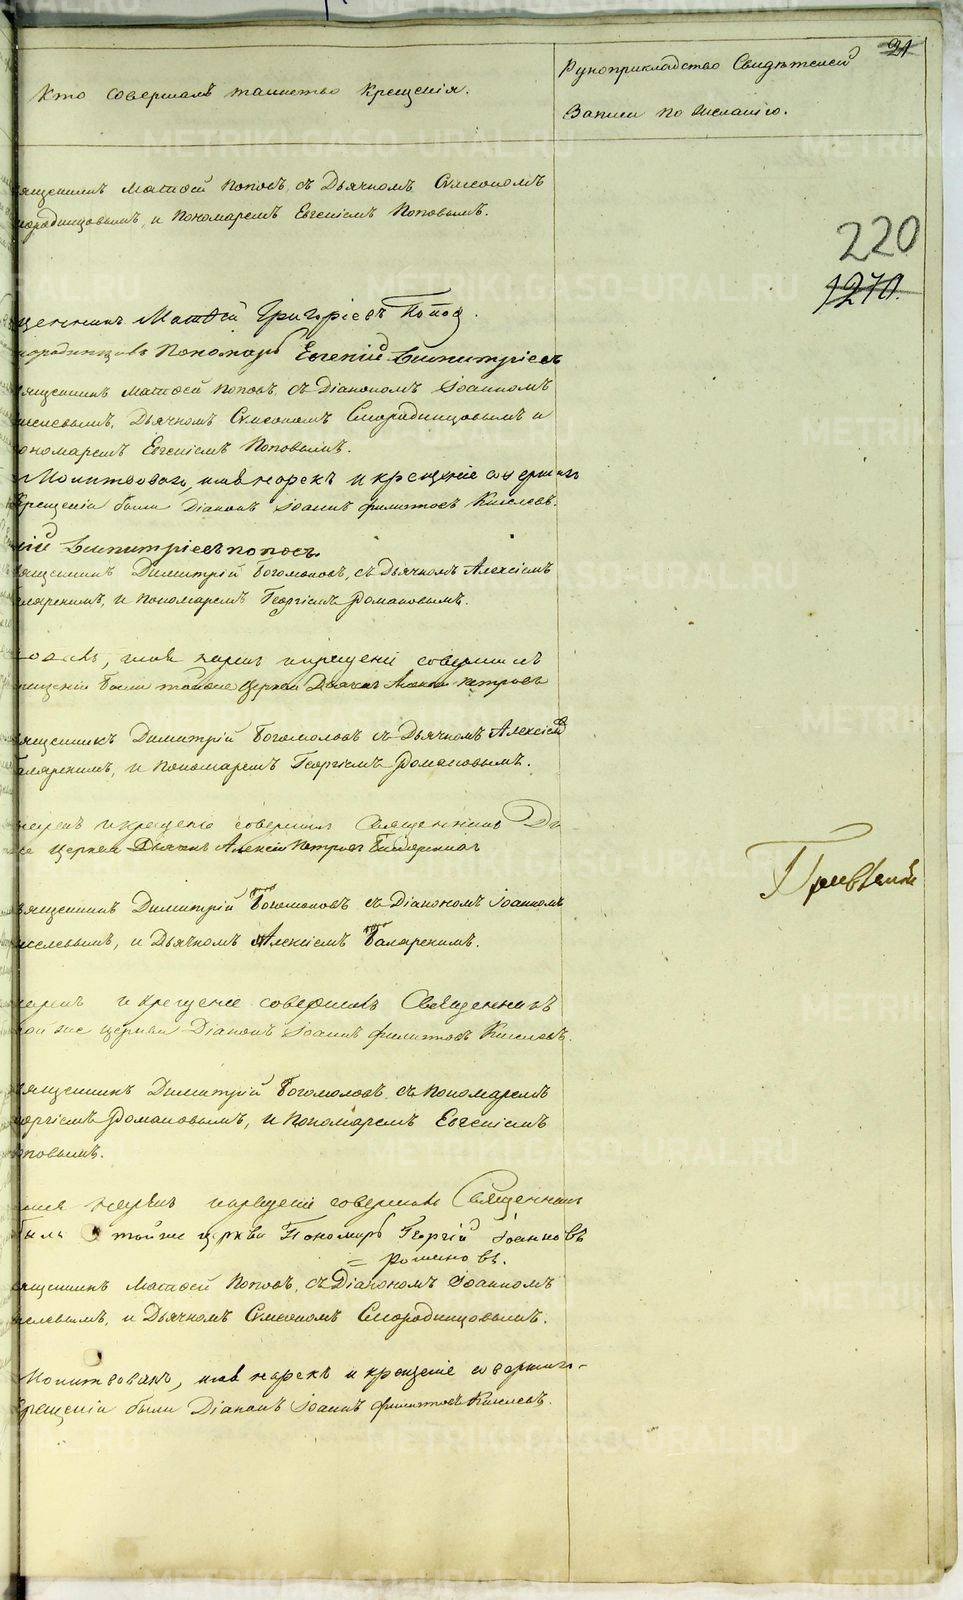 21
Кто совершалъ таинство крещенія.
Рукоприкладство Свидѣтелей
Записи по желанію.
ященникъ Матѳей Поповъ, съ Дьячкомъ Сѵмеономъ
мородинцовымъ, и Пономаремъ Евгеніемъ Поповымъ.
220
1270.
щенникъ Матѳій Григоріевъ Поповъ.
мородинцовъ Пономарь Евгеній Димитріевъ
вященникъ Матѳей Поповъ, съ Діакономъ Іоанномъ
иселевымъ, Дьячкомъ Сѵмеономъ Смородинцовымъ и
ономаремъ Евгеніемъ Поповымъ.
Молитвовалъ, имя нарекъ и крещеніе совершилъ
крещеніи были Діаконъ Іоаннъ Филиповъ Киселевъ.
ній Димитріевъ Поповъ
вященникъ Димитрій Богомоловъ, съ Дьячкомъ Алексіемъ
и Пономаремъ Георгіемъ Романовымъ.
имя нарекъ и крещеніе совершилъ
рещеніи были тойже Церкви Дьячекъ Алексій Петровъ
вященникъ Димитрій Богомоловъ съ Дьячкомъ Алексіемъ
и Пономаремъ Георгіемъ Романовымъ.
нарекъ и крещеніе совершилъ Священникъ Ди
же Церкви Дьячекъ Алексій Петровъ
Гривскій
вященникъ Димитрій Богомоловъ съ Діакономъ Іоанномъ
иселевымъ, и Дьячкомъ Алексіемъ
нарекъ и крещеніе совершилъ Священникъ
той же Церкви Діаконъ Іоаннъ Филиповъ Киселевъ.
вященникъ Димитрій Богомоловъ съ Пономаремъ
еоргіемъ Романовымъ, и Пономаремъ Евгеніемъ
оповымъ.
имя нарекъ и крещеніе совершилъ Священникъ
были тойже церкви Пономарь Георгій Іоанновъ
= Романовъ.
вященникъ Матѳей Поповъ, съ Діакономъ Іоанномъ
иселевымъ, и Дьячкомъ Сѵмеономъ Смородинцовымъ.
Молитвовалъ, имя нарекъ и крещеніе совершил-
крещеніи были Діаконъ Іоаннъ Филиповъ Киселевъ.
METRIKI.GASO-URAL.RU